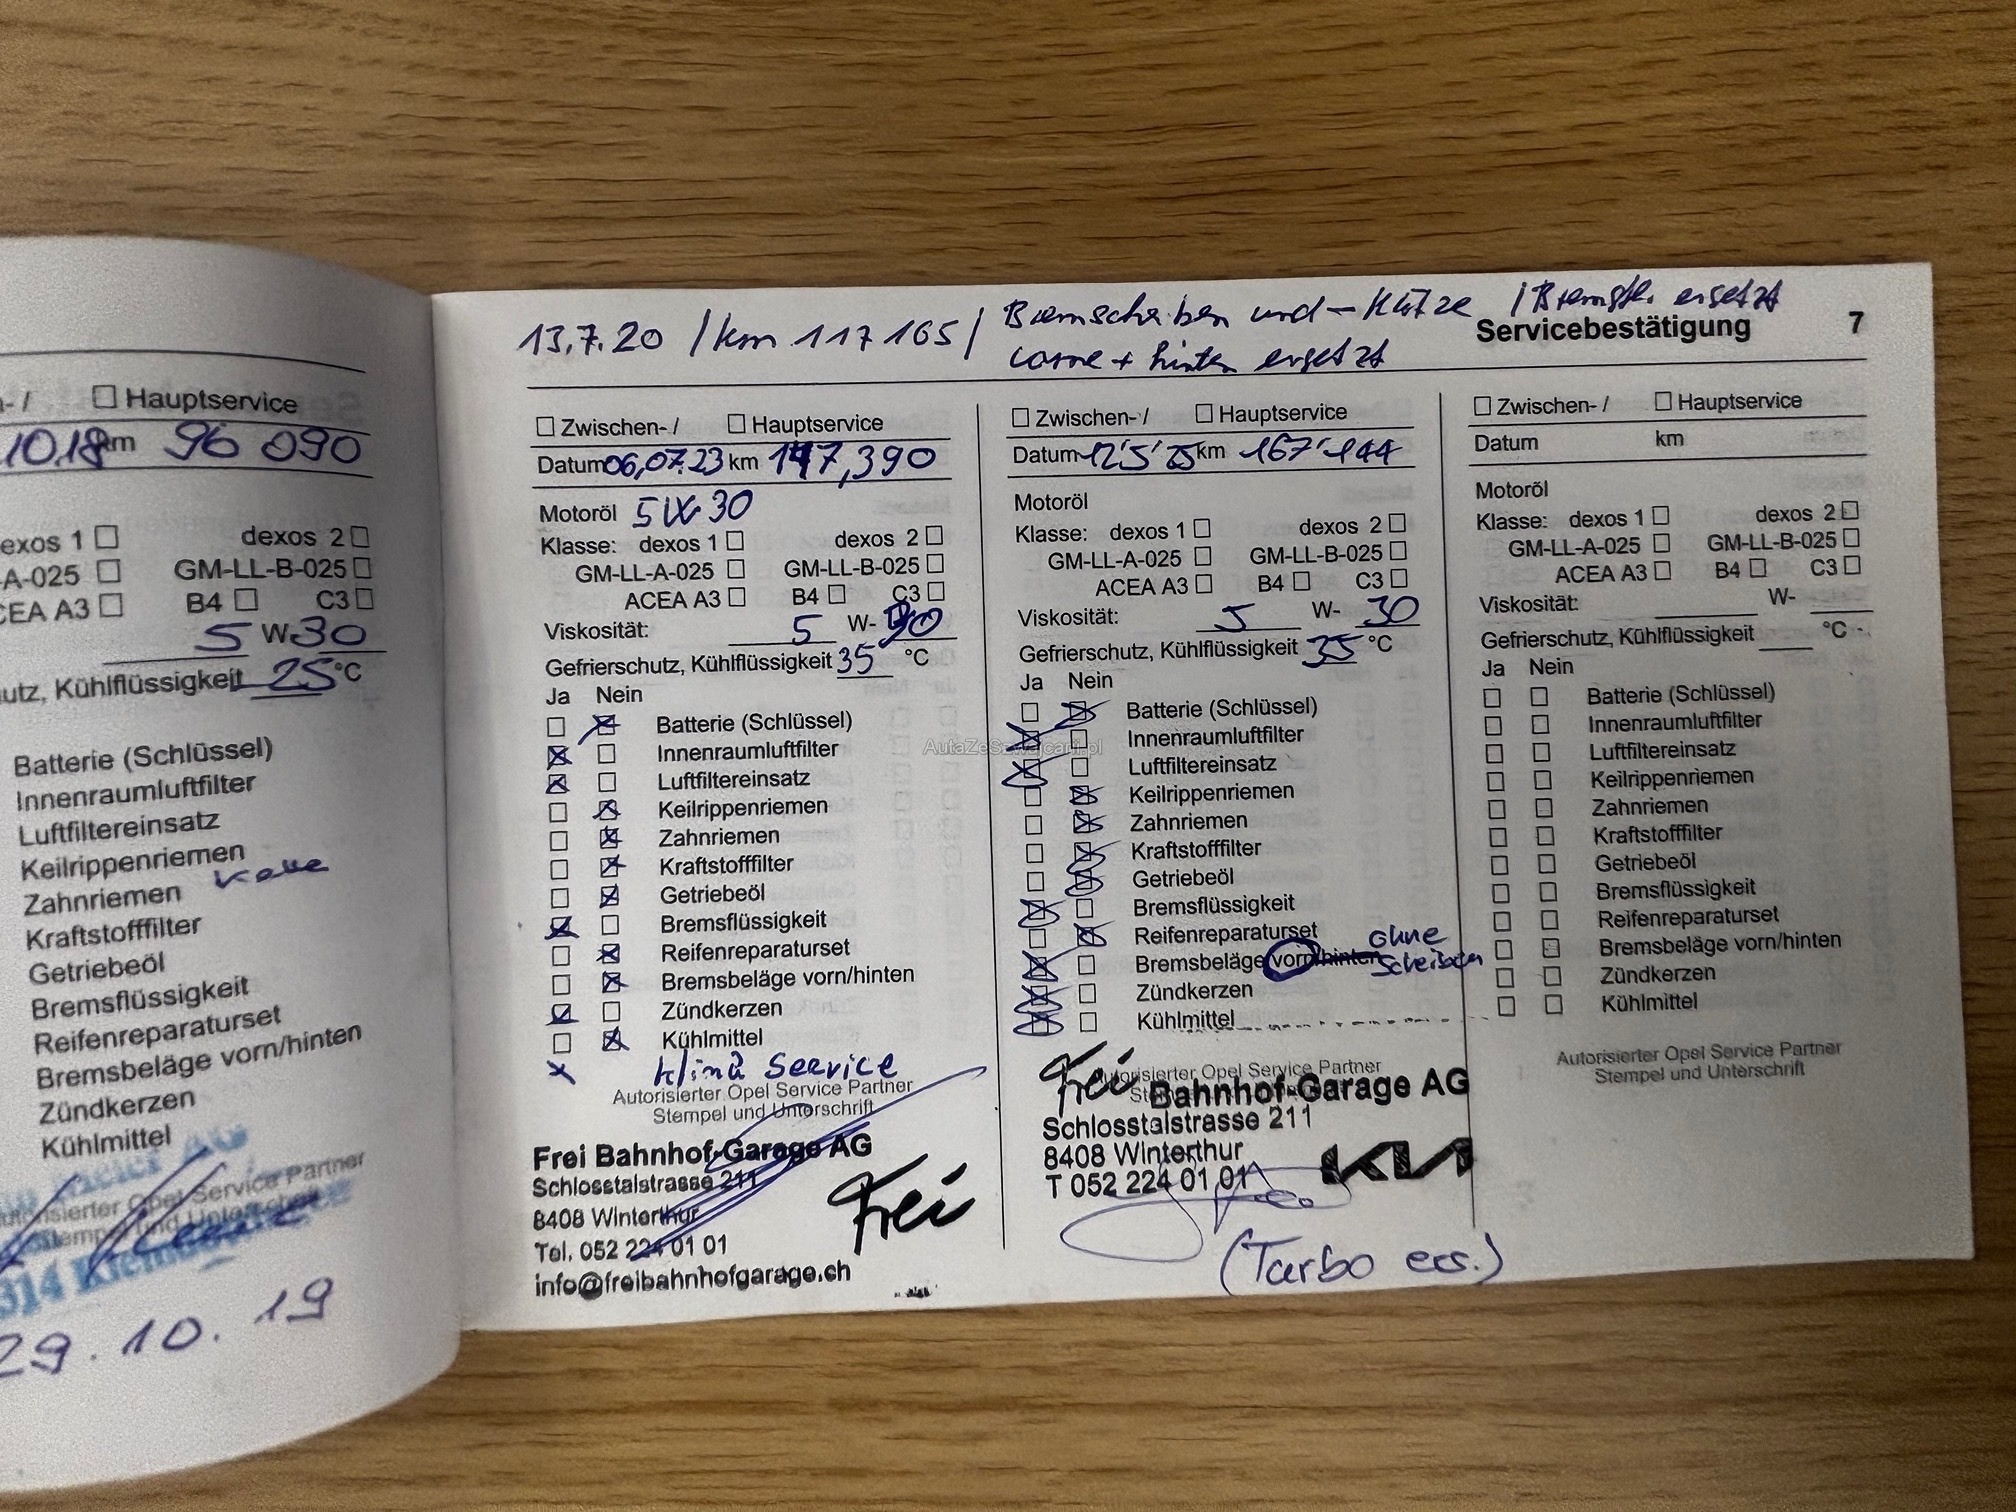 Hauptservice
10.18 km 96 090
dexos 1 dexos 2
A-025 GM-LL-B-025
CEA A3 B4 C3
5 W-30
utz, Kühlflüssigkeit 25 °C
Batterie (Schlüssel)
Innenraumluftfilter
Luftfiltereinsatz
Keilrippenriemen
Zahnriemen
Kraftstofffilter
Getriebeöl
Bremsflüssigkeit
Reifenreparaturset
Bremsbeläge vorn/hinten
Zündkerzen
Kühlmittel
Opel Service Partner
29.10.19
13.7.20 / km 117 165 / Bremscheiben und - Klötze / Bremsfl. ersetzt
vorne + hinten ersetzt
Servicebestätigung 7
Zwischen- / Hauptservice
Datum 06,07.23 km 147,390
Motoröl 5W30
Klasse: dexos 1 dexos 2
GM-LL-A-025 GM-LL-B-025
ACEA A3 B4 C3
Viskosität: 5 W- 30
Gefrierschutz, Kühlflüssigkeit 35 °C
Ja Nein
Batterie (Schlüssel)
Innenraumluftfilter
Luftfiltereinsatz
Keilrippenriemen
Zahnriemen
Kraftstofffilter
Getriebeöl
Bremsflüssigkeit
Reifenreparaturset
Bremsbeläge vorn/hinten
Zündkerzen
Kühlmittel
Klima Service
Autorisierter Opel Service Partner
Stempel und Unterschrift
Frei Bahnhof-Garage AG
Schlosstalstrasse 211
8408 Winterthur
Tel. 052 224 01 01
info@freibahnhofgarage.ch
Frei
Zwischen- / Hauptservice
Datum 12'5'25 km 167'144
Motoröl
Klasse: dexos 1 dexos 2
GM-LL-A-025 GM-LL-B-025
ACEA A3 B4 C3
Viskosität: 5 W- 30
Gefrierschutz, Kühlflüssigkeit 35 °C
Ja Nein
Batterie (Schlüssel)
Innenraumluftfilter
Luftfiltereinsatz
Keilrippenriemen
Zahnriemen
Kraftstofffilter
Getriebeöl
Bremsflüssigkeit
Reifenreparaturset
Bremsbeläge vorn/hinten ohne Scheiben
Zündkerzen
Kühlmittel
Autorisierter Opel Service Partner
Frei Bahnhof-Garage AG
Schlosstalstrasse 211
8408 Winterthur
T 052 224 01 01
KIA
(Turbo ers.)
Zwischen- / Hauptservice
Datum km
Motoröl
Klasse: dexos 1 dexos 2
GM-LL-A-025 GM-LL-B-025
ACEA A3 B4 C3
Viskosität: W-
Gefrierschutz, Kühlflüssigkeit °C
Ja Nein
Batterie (Schlüssel)
Innenraumluftfilter
Luftfiltereinsatz
Keilrippenriemen
Zahnriemen
Kraftstofffilter
Getriebeöl
Bremsflüssigkeit
Reifenreparaturset
Bremsbeläge vorn/hinten
Zündkerzen
Kühlmittel
Autorisierter Opel Service Partner
Stempel und Unterschrift